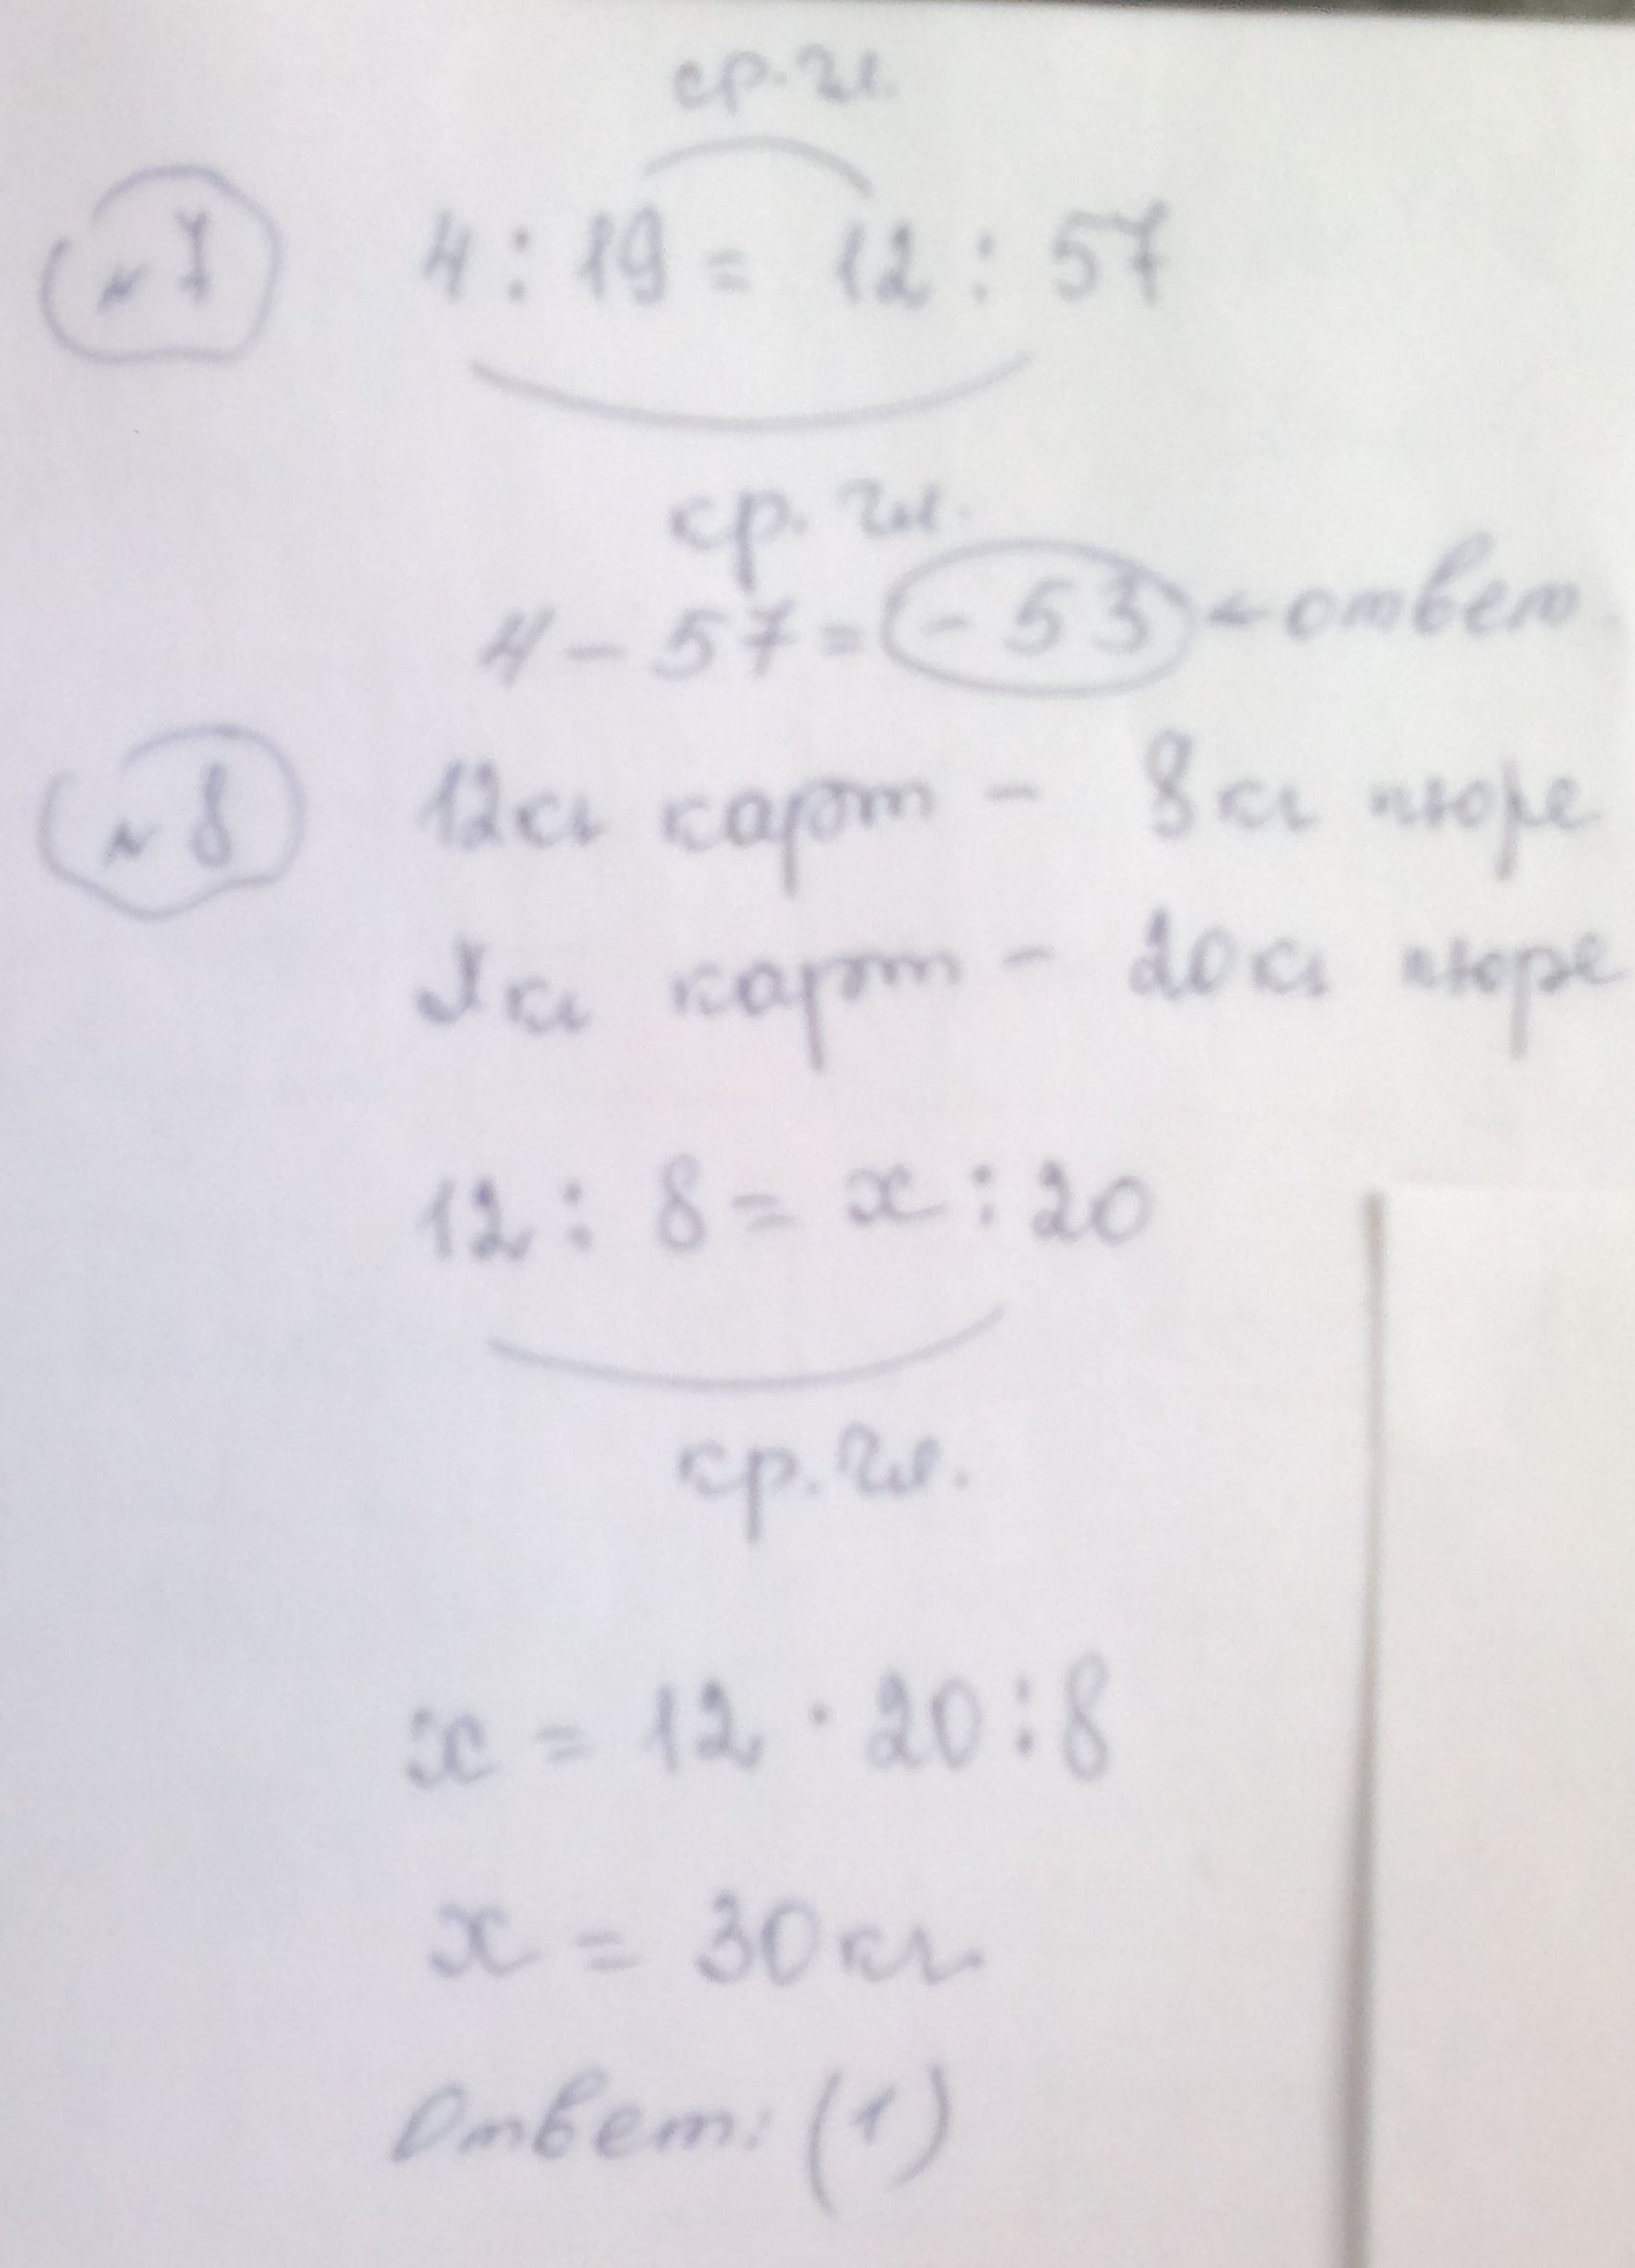 ср. чл.
№7 4 : 19 = 12 : 57
кр. чл.
4 - 57 = -53 ← ответ
№8 12кг карт - 8кг пюре
Xкг карт - 20кг пюре
12 : 8 = x : 20
кр. чл.
x = 12 · 20 : 8
x = 30кг
Ответ: (1)